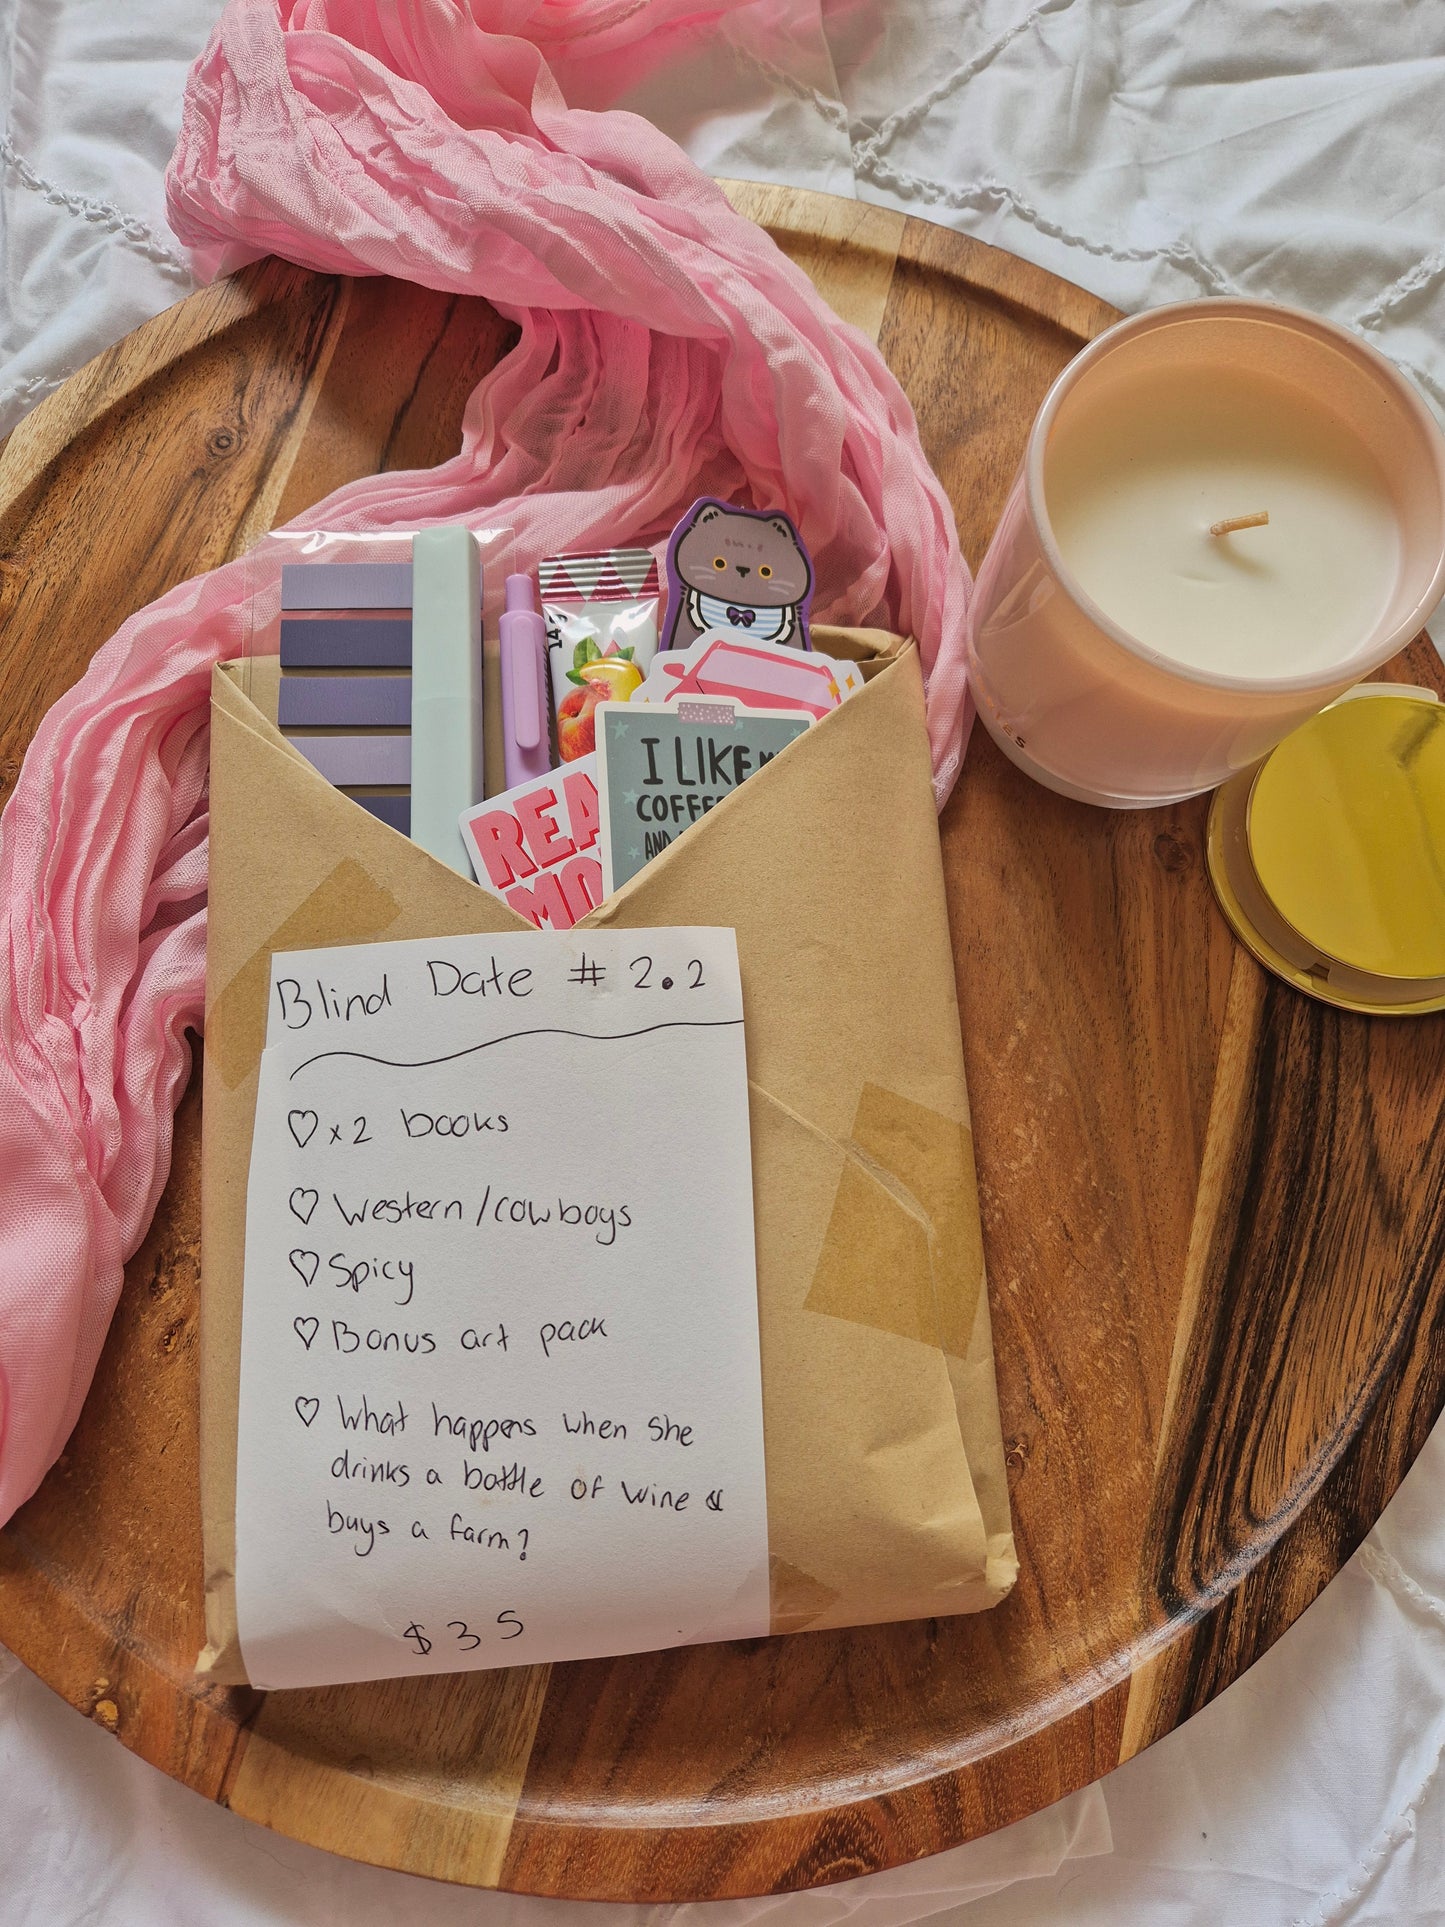 14g
I LIKE
COFFE
AND
REA
MO
Blind Date # 2.2
♡ x2 books
♡ Western/cowboys
♡ Spicy
♡ Bonus art pack
♡ What happens when she
drinks a bottle of wine &
buys a farm?
$35